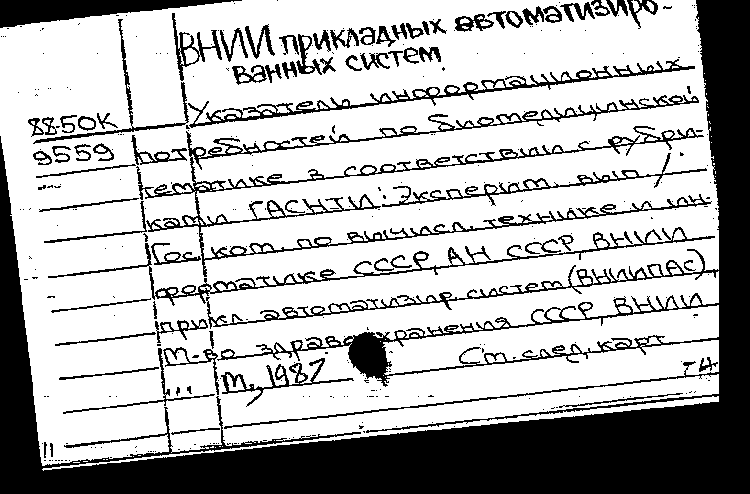 ВНИИ прикладных автоматизиро-
ванных систем
88-50К
9559
Указатель информационных
потребностей по биомедицинской
тематике в соответствии с рубри-
ками ГАСНТИ: Эксперим. вып. /
Гос. ком. по вычисл. технике и ин-
форматике СССР, АН СССР, ВНИИ
прикл. автоматизир. систем (ВНИИПАС),
М-во здравоохранения СССР, ВНИИ
... М., 1987
См. след. карт.